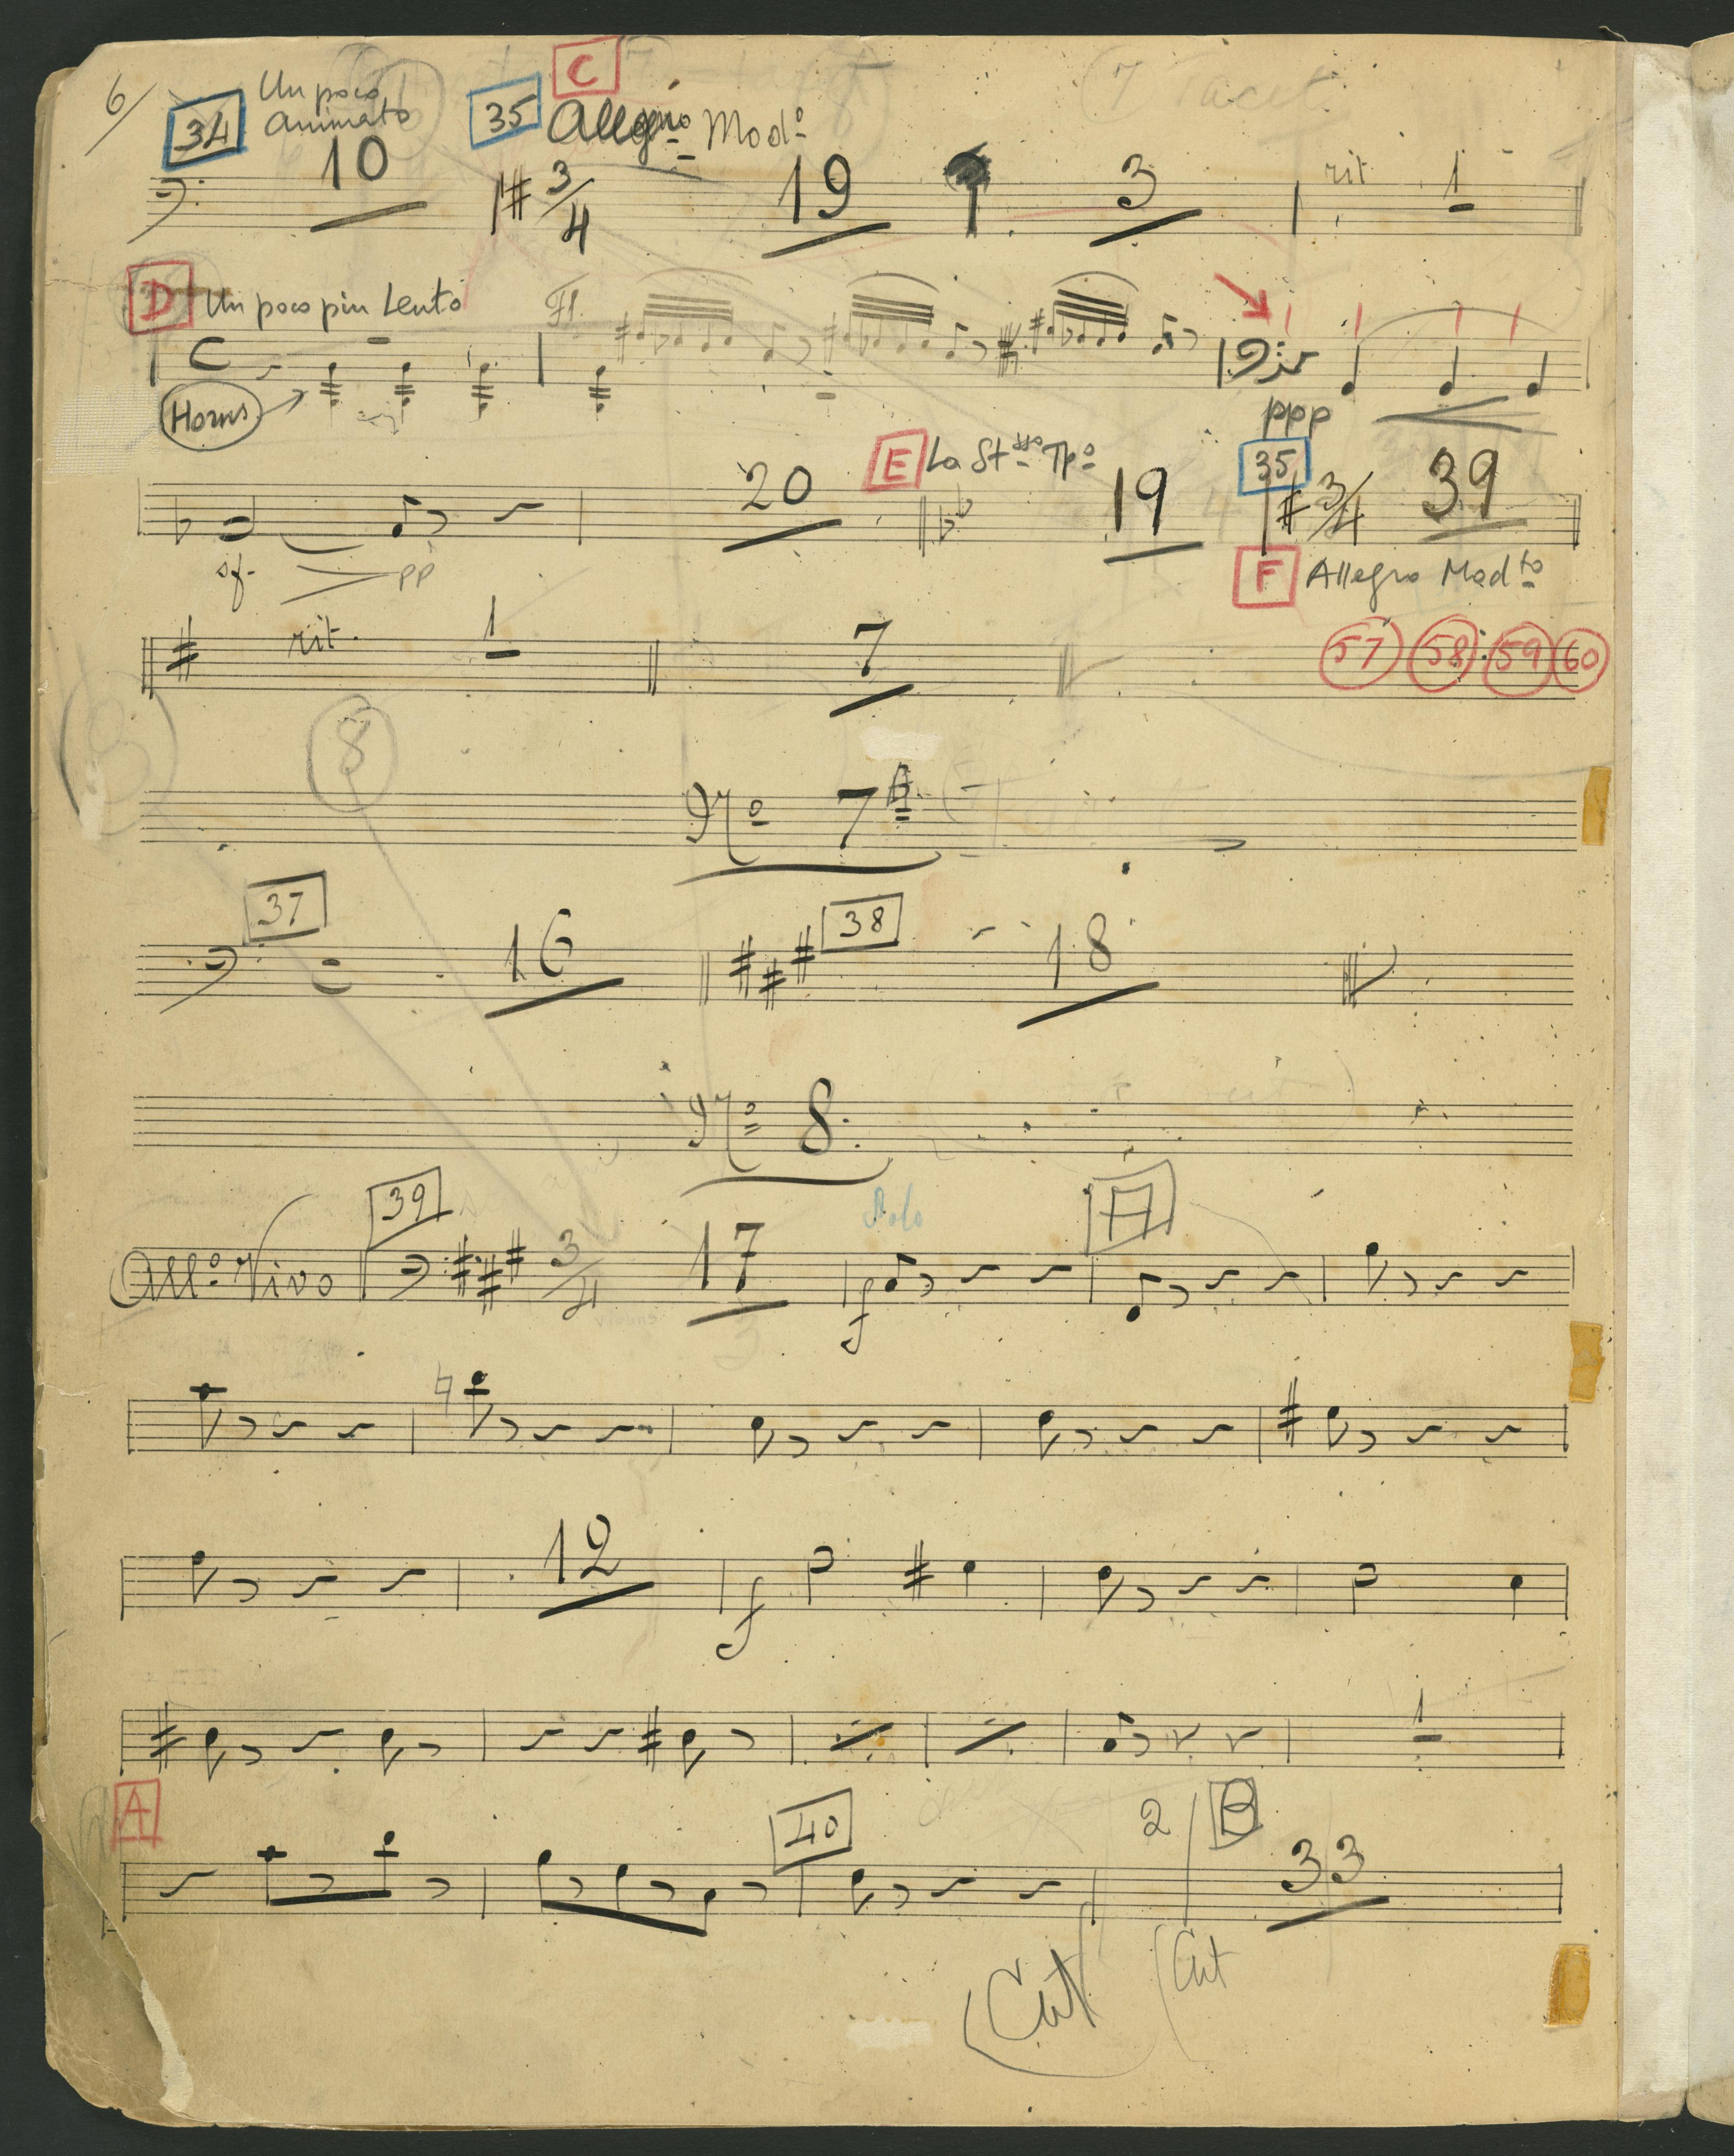 6/
7 Tacet
34 Un poco animato 35 C Allegro Mod°
10 3/4 19 3 rit. 1
D Un poco piu Lento Fl.
C
Horns ppp
20 E Lo St^sso Tp° 19 35 3/4 39
sf. pp F Allegro Mod^to
rit. 1 7 57 58 59 60
8 8
N° 7
37 16 38 18
N° 8.
39 Solo A
All° Vivo 3/4 17 f
3
12 f
1
A 40 2 B 33
Cut Cut